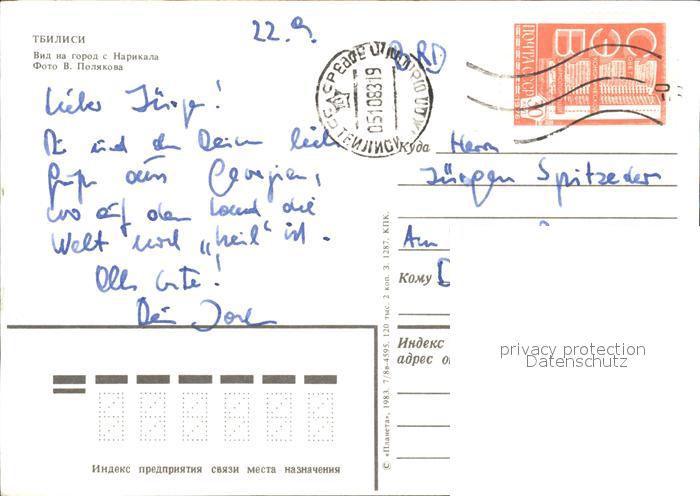 22.9.
ТБИЛИСИ
Вид на город с Нарикала
Фото В. Полякова
BRD
ПОЧТА СССР
05108319
ТБИЛИСИ
Lieber Jürgen!
Dir und den Deinen liebe
Grüße aus Georgien,
wo auf dem Land die
Welt noch „heil“ ist.
Alles Gute!
Dein
Куда
Herrn
Jürgen Spitzeder
Am
Кому
Индекс
адрес
© «Планета», 1983. 7/8в-4595. 120 тыс. 2 коп. З. 1287. КПК.
Индекс предприятия связи места назначения
privacy protection
Datenschutz